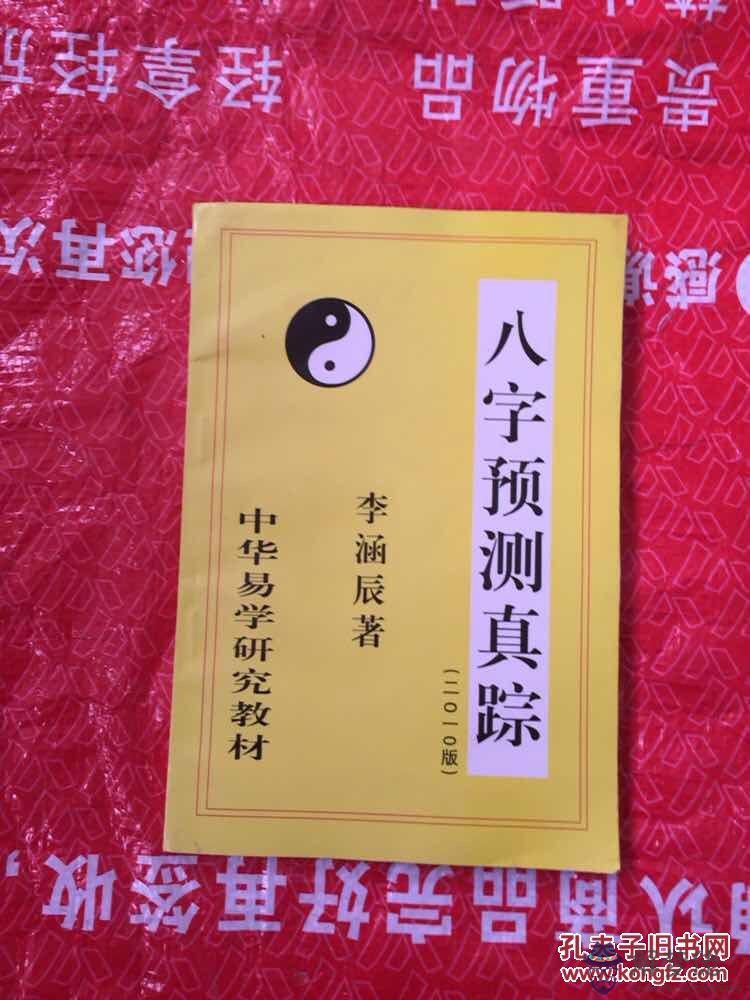 贵重物品
轻拿轻放
感谢您再次
八字预测真踪
(二〇一〇版)
李涵辰著
中华易学研究教材
认商品完好再签收,
孔夫子旧书网
www.kongfz.com